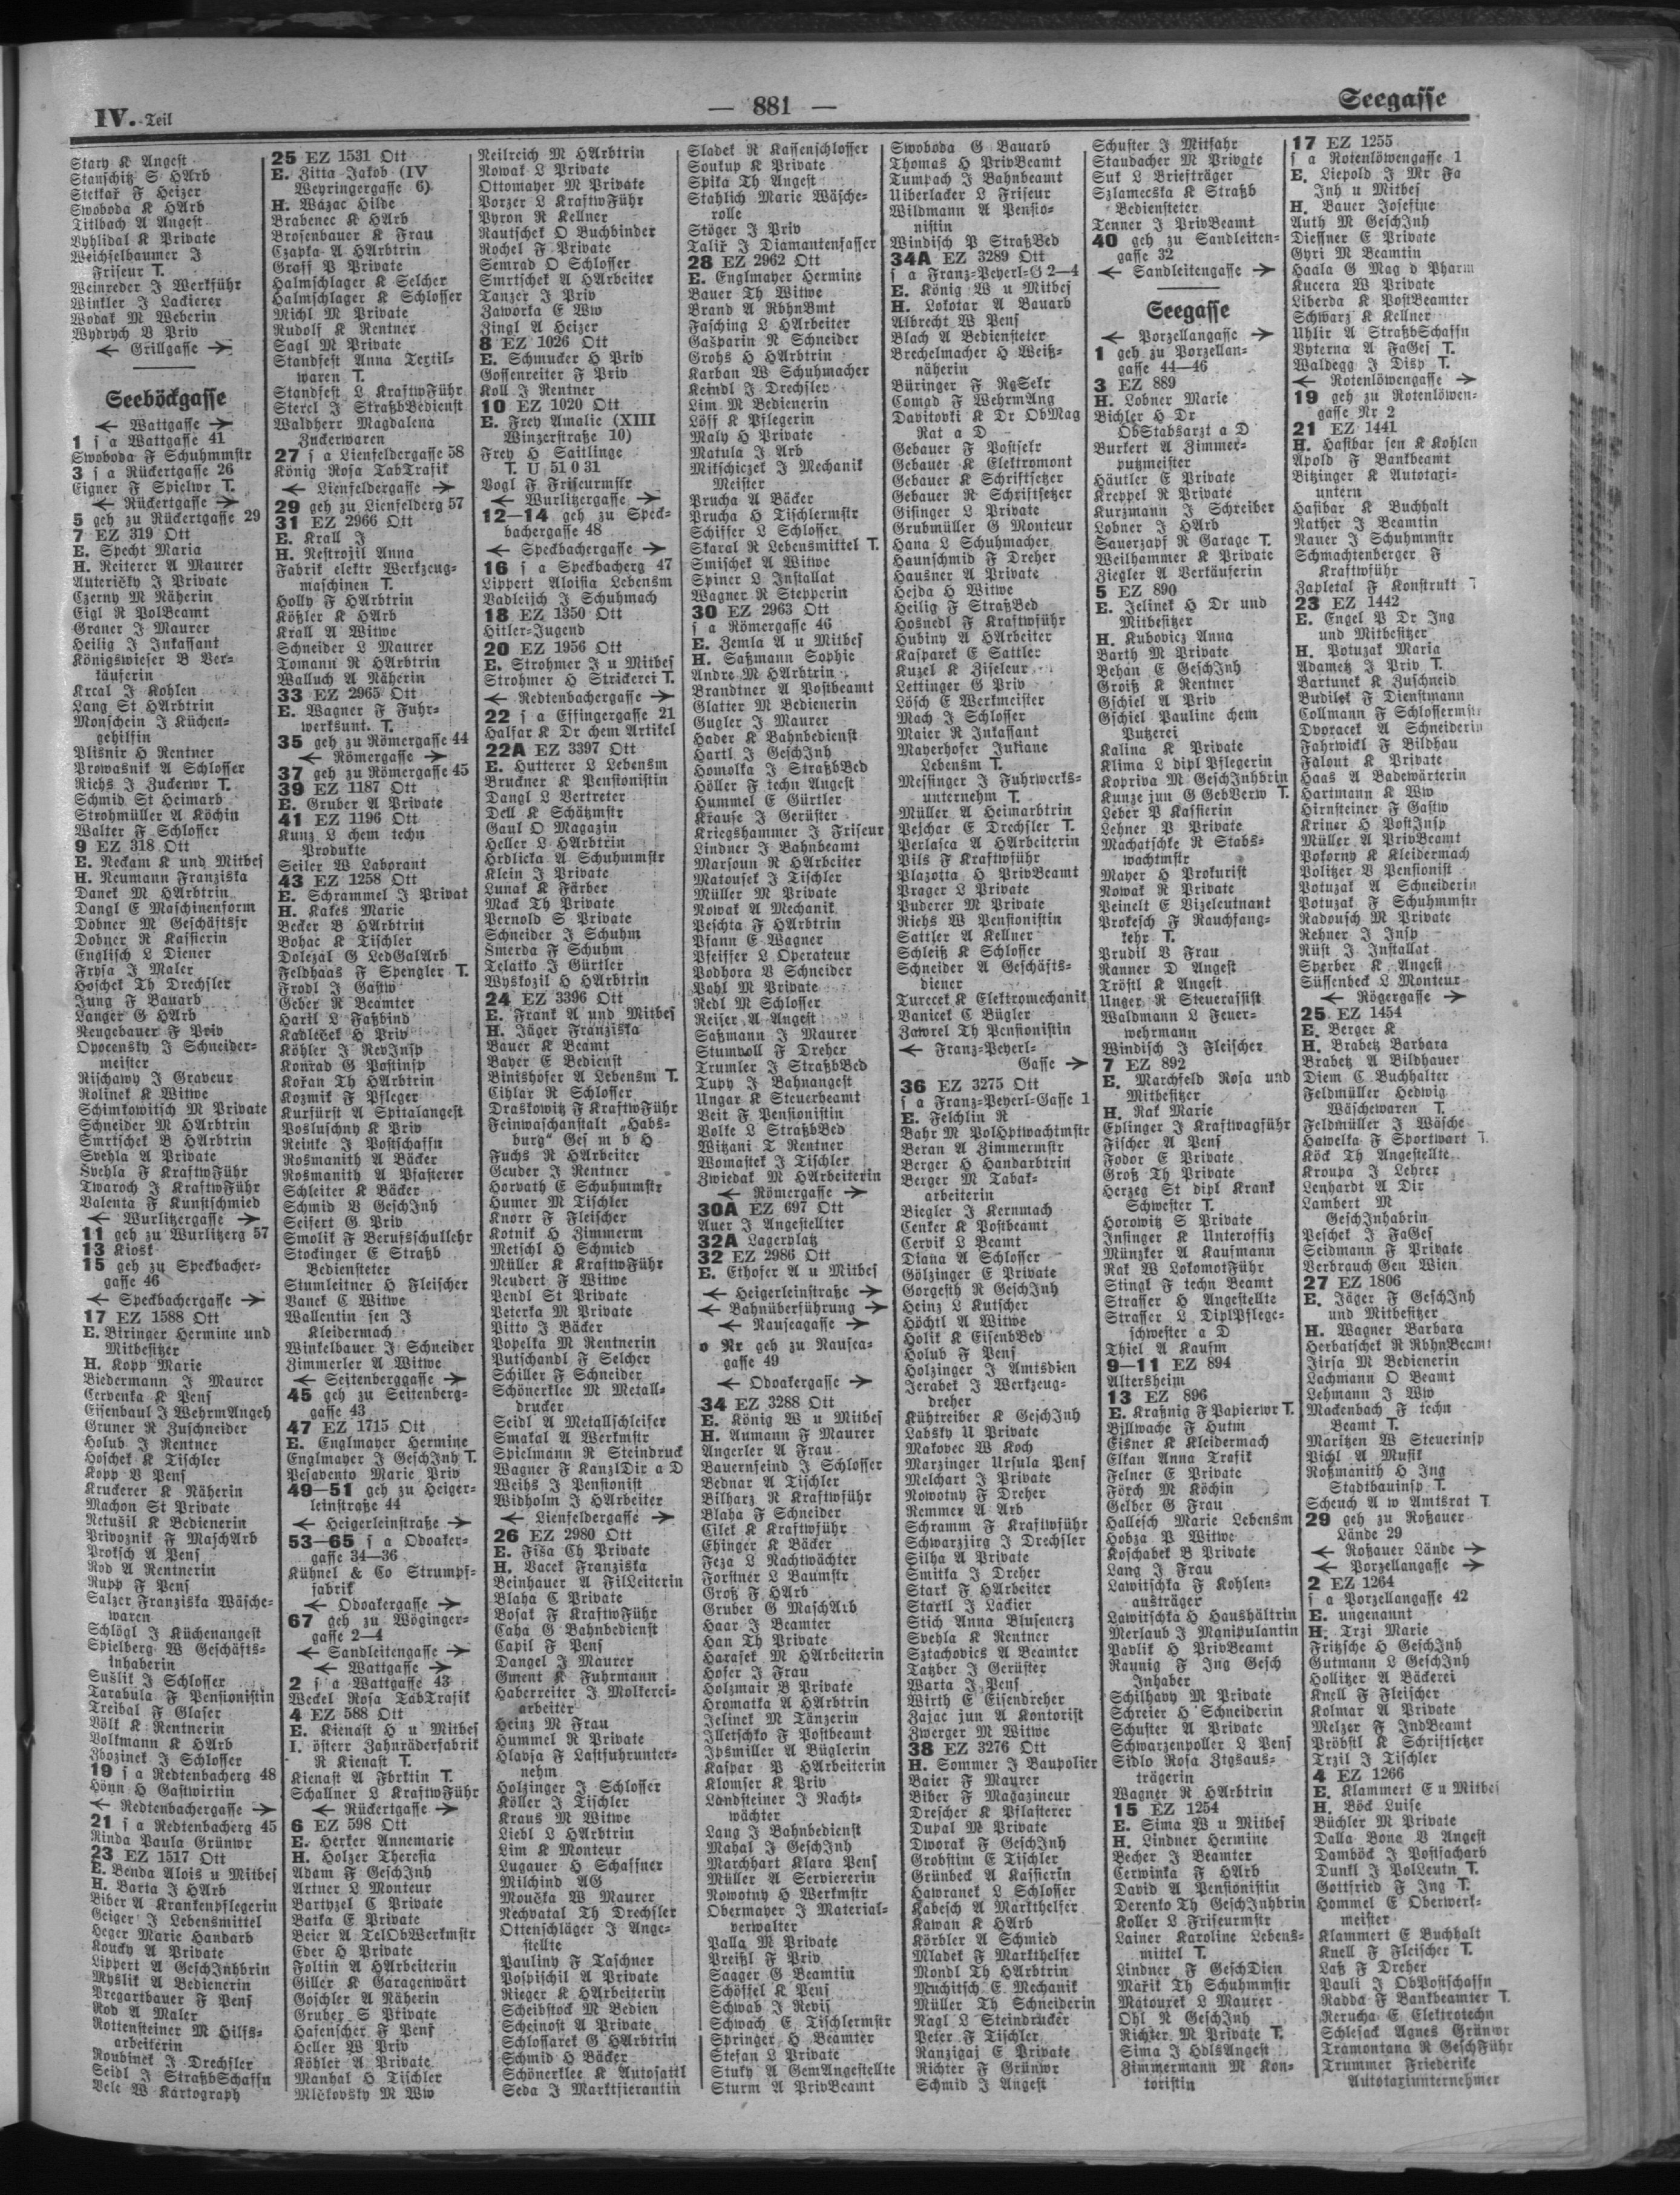 IV. Teil
— 881 —
Seegasse
Stary K Angest
Stanschitz S HArb
Stetkař F Heizer
Swoboda K HArb
Titlbach A Angest
Vyhlidal K Private
Weichselbaumer J
Friseur T.
Weinreder J Werkführ
Winkler J Lackierer
Wodak M Weberin
Wydrych V Priv
← Grillgasse →
Seeböckgasse
← Wattgasse →
1 s a Wattgasse 41
Swoboda F Schuhmmstr
3 s a Rückertgasse 26
Eigner F Spielwr T.
← Rückertgasse →
5 geh zu Rückertgasse 29
7 EZ 319 Ott
E. Specht Maria
H. Reiterer A Maurer
Auteričky J Private
Czerny M Näherin
Eigl R PolBeamt
Graner J Maurer
Heilig J Inkassant
Königswieser B Ver-
käuferin
Krcal J Kohlen
Lang St HArbtrin
Monschein J Küchen-
gehilfin
Plisnir H Rentner
Prowasnik A Schlosser
Riehs J Zuckerwr T.
Schmid St Heimarb
Strohmüller A Köchin
Walter F Schlosser
9 EZ 318 Ott
E. Neckam K und Mitbes
H. Neumann Franziska
Danek M HArbtrin
Dangl E Maschinenform
Döbner M Geschäftsfr
Dobner R Kassierin
Englisch L Diener
Frysa J Maler
Hoschek Th Drechsler
Jung F Bauarb
Langer G HArb
Neugebauer F Priv
Opocensky J Schneider-
meister
Rischawy J Graveur
Rolinek K Witwe
Schimkowitsch M Private
Schneider M HArbtrin
Smrtschek B HArbtrin
Svehla A Private
Svehla F KraftwFühr
Twaroch J KraftwFühr
Valenta F Kunstschmied
← Wurlitzergasse →
11 geh zu Wurlitzerg 57
13 Kiosk
15 geh zu Speckbacher-
gasse 46
← Speckbachergasse →
17 EZ 1588 Ott
E. Biringer Hermine und
Mitbesitzer
H. Kopp Marie
Biedermann J Maurer
Cervenka K Pens
Eisenbaul J WehrmAngeh
Gruner R Zuschneider
Holub J Rentner
Hoschek K Tischler
Kopp V Pens
Kruckerer K Näherin
Machon St Private
Netušil K Bedienerin
Privoznik F MaschArb
Proksch A Pens
Rod A Rentnerin
Rupp F Pens
Salzer Franziska Wäsche-
waren
Schlögl J Küchenangest
Spielberg W Geschäfts-
inhaberin
Sušlik J Schlosser
Tarabula F Pensionistin
Treibal F Glaser
Völk K Rentnerin
Volkmann K HArb
Zbozinek J Schlosser
19 s a Redtenbacherg 48
Hönn H Gastwirtin
← Redtenbachergasse →
21 s a Redtenbacherg 45
Rinda Paula Grünwr
23 EZ 1517 Ott
E. Benda Alois u Mitbes
H. Barta J HArb
Biber A Krankenpflegerin
Geiger J Lebensmittel
Heger Marie Handarb
Koucky A Private
Lippert A GeschJnhbrin
Myslik A Bedienerin
Pregartbauer F Pens
Rod A Maler
Rottensteiner M Hilfs-
arbeiterin
Roubinek J Drechsler
Seidl J StraßbSchaffn
Vele W Kartograph
25 EZ 1531 Ott
E. Zitta Jakob (IV
Weyringergasse 6)
H. Wazac Hilde
Brabenec K HArb
Brosenbauer K Frau
Czapka A HArbtrin
Graff P Private
Halmschlager K Selcher
Halmschlager K Schlosser
Michl M Private
Rudolf K Rentner
Sagl M Private
Standfest Anna Textil-
waren T.
Standfest L KraftwFühr
Stercl J StraßbBedienst
Waldherr Magdalena
Zuckerwaren
27 s a Lienfeldergasse 58
König Rosa TabTrafik
← Lienfeldergasse →
29 geh zu Lienfelderg 57
31 EZ 2966 Ott
E. Krall J
H. Nestrojil Anna
Fabrik elektr Werkzeug-
maschinen T.
Holly F HArbtrin
Kößler K HArb
Krall A Witwe
Schneider L Maurer
Tomann R HArbtrin
Walluch A Näherin
33 EZ 2965 Ott
E. Wagner F Fuhr-
werksunt. T.
35 geh zu Römergasse 44
← Römergasse →
37 geh zu Römergasse 45
39 EZ 1187 Ott
E. Gruber A Private
41 EZ 1196 Ott
Kunz L chem techn
Produkte
Seiler W Laborant
43 EZ 1258 Ott
E. Schrammel J Privat
H. Kakes Marie
Becker B HArbtrin
Bohac K Tischler
Dolezal G LedGalArb
Feldhaas F Spengler T.
Frodl J Gastw
Geber R Beamter
Hartl L Faßbind
Kadleček H Priv
Köhler J RevInsp
Konrad G Postinsp
Kořan Th HArbtrin
Kozmik F Pfleger
Kurfürst A Spitalangest
Posluschny K Priv
Reinke J Postschaffn
Rosmanith A Bäcker
Rosmanith A Pflasterer
Schleiter K Bäcker
Schmid V GeschJnh
Seifert G Priv
Smolik F Berufsschullehr
Stockinger E Straßb
Bediensteter
Stumleitner H Fleischer
Vanek C Witwe
Wallentin sen J
Kleidermach
Winkelbauer J Schneider
Zimmerler A Witwe
← Seitenberggasse →
45 geh zu Seitenberg-
gasse 43
47 EZ 1715 Ott
E. Englmayer Hermine
Englmayer J GeschJnh T.
Pesavento Marie Priv
49—51 geh zu Heiger-
leinstraße 44
← Heigerleinstraße →
53—65 s a Odoaker-
gasse 34—36
Kühnel & Co Strumpf-
fabrik
← Odoakergasse →
67 geh zu Wöginger-
gasse 2—4
← Sandleitengasse →
← Wattgasse →
2 s a Wattgasse 43
Weckel Rosa TabTrafik
4 EZ 588 Ott
E. Kienast H u Mitbes
I. österr Zahnräderfabrik
R Kienast T.
Kienast A Fbrktin T.
Schallner L KraftwFühr
← Rückertgasse →
6 EZ 598 Ott
E. Herker Annemarie
H. Holzer Theresia
Adam F GeschJnh
Artner L Monteur
Bartyzel C Private
Batka E Private
Beier A TelObWerkmstr
Eder H Private
Foltin A HArbeiterin
Giller K Garagenwärt
Goschler A Näherin
Gruber S Private
Hafenscher F Pens
Heller W Priv
Köhler A Private
Manhal H Tischler
Mlčlovsky M Ww
Neilreich M HArbtrin
Nowak L Private
Ottomayer M Private
Porzer L KraftwFühr
Pyron R Kellner
Rautschek O Buchbinder
Rochel F Private
Semrad O Schlosser
Smrtschek A HArbeiter
Tanzer J Priv
Zaworka E Ww
Zingl A Heizer
8 EZ 1026 Ott
E. Schmucker H Priv
Gossenreiter F Priv
Koll J Rentner
10 EZ 1020 Ott
E. Frey Amalie (XIII
Winzerstraße 10)
Frey H Saitlinge
T. U 51 0 31
Vogl F Friseurmstr
← Wurlitzergasse →
12—14 geh zu Speck-
bachergasse 48
← Speckbachergasse →
16 s a Speckbacherg 47
Lippert Aloisia Lebensm
Vadlejch J Schuhmach
18 EZ 1350 Ott
Hitler-Jugend
20 EZ 1956 Ott
E. Strohmer J u Mitbes
Strohmer H Strickerei T.
← Redtenbachergasse →
22 s a Effingergasse 21
Halfar K Dr chem Artikel
22A EZ 3397 Ott
E. Hutterer L Lebensm
Bruckner K Pensionistin
Dangl L Vertreter
Dell K Schätzmstr
Gaul O Magazin
Heller L HArbtrin
Hrdlicka A Schuhmmstr
Klein J Private
Lunak K Färber
Mack Th Private
Pernold S Private
Schneider J Schuhm
Smerda F Schuhm
Telatko J Gürtler
Wyskozil H HArbtrin
24 EZ 3396 Ott
E. Frank A und Mitbes
H. Jäger Franziska
Bauer K Beamt
Bayer E Bedienst
Binishofer A Lebensm T.
Cihlar R Schlosser
Draskowitz F KraftwFühr
Feinwaschanstalt „Habs-
burg" Ges m b H
Fuchs R HArbeiter
Geuder J Rentner
Horvath E Schuhmmstr
Humer M Tischler
Knorr F Fleischer
Kotnik H Zimmerm
Metschl H Schmied
Müller K KraftwFühr
Neudert F Witwe
Pendl St Private
Peterka M Private
Pitto J Bäcker
Popelka M Rentnerin
Putschandl F Selcher
Schiller F Schneider
Schönerklee M Metall-
drucker
Seidl A Metallschleifer
Smakal A Werkmstr
Spielmann R Steindruck
Wagner F KanzlDir a D
Weihs J Pensionist
Widholm J HArbeiter
← Lienfeldergasse →
26 EZ 2980 Ott
E. Fiša Ch Private
H. Vacek Franziska
Beinhauer A FilLeiterin
Blaha C Private
Bosak F KraftwFühr
Caha G Bahnbedienst
Capil F Pens
Dangel J Maurer
Gment K Fuhrmann
Haberreiter J Molkerei-
arbeiter
Heinz M Frau
Hummel R Private
Hlavsa F Lastfuhrunter-
nehm
Holzinger J Schlosser
Köller J Tischler
Kraus M Witwe
Liebl L HArbtrin
Lim K Monteur
Lugauer H Schaffner
Milchind AG
Moučka W Maurer
Nechvatal Th Drechsler
Ottenschläger J Ange-
stellte
Pauliny F Taschner
Pospischil A Private
Rieger K HArbeiterin
Scheibstock M Bedien
Scheinost A Private
Schlossarek G HArbtrin
Schmid H Bäcker
Schönerklee K Autosattl
Seda J Marktfierantin
Sladek R Kassenschlosser
Soukup K Private
Spika Th Angest
Stahlich Marie Wäsche-
rolle
Stöger J Priv
Talir J Diamantenfasser
28 EZ 2962 Ott
E. Englmayer Hermine
Bauer Th Witwe
Brand A RbhnBmt
Fasching L HArbeiter
Gašparin R Schneider
Grohs H HArbtrin
Karban W Schuhmacher
Keindl J Drechsler
Lim M Bedienerin
Löff K Pflegerin
Maly H Private
Matula J Arb
Mikschiczek J Mechanik
Meister
Prucha A Bäcker
Prucha H Tischlermstr
Schiffer L Schlosser
Skaral R Lebensmittel T.
Smischek A Witwe
Spiner L Installat
Wagner R Stepperin
30 EZ 2963 Ott
s a Römergasse 46
E. Zemla A u Mitbes
H. Saßmann Sophie
Andre M HArbtrin
Brandtner A Postbeamt
Glatter M Bedienerin
Gugler J Maurer
Hader K Bahnbedienst
Hartl J GeschJnh
Homolka J StraßbBed
Höller F techn Angest
Hummel E Gürtler
Krause J Gerüster
Kriegshammer J Friseur
Lindner J Bahnbeamt
Marsoun R HArbeiter
Matousek J Tischler
Müller M Private
Nowak A Mechanik
Peschta F HArbtrin
Pfann E Wagner
Pfeiffer L Operateur
Podhora V Schneider
Pohl M Private
Redl M Schlosser
Reiser A Angest
Saßmann J Maurer
Stumvoll F Dreher
Trumler J StraßbBed
Tupy J Bahnangest
Ungar K Steuerbeamt
Veit F Pensionistin
Volke L StraßbBed
Witzani T Rentner
Womastek J Tischler
Zwiedak M HArbeiterin
← Römergasse →
30A EZ 697 Ott
Auer J Angestellter
32A Lagerplatz
32 EZ 2986 Ott
E. Ethofer A u Mitbes
← Heigerleinstraße →
← Bahnüberführung →
← Nauseagasse →
o Nr geh zu Nausea-
gasse 49
← Odoakergasse →
34 EZ 3288 Ott
E. König W u Mitbes
H. Aumann F Maurer
Angerler A Frau
Bauernfeind J Schlosser
Bednar A Tischler
Bilharz R Kraftwführ
Blaha F Schneider
Cilek K Kraftwführ
Ehinger K Bäcker
Feza L Nachtwächter
Forstner L Baumstr
Groß F HArb
Gruber G MaschArb
Haar J Beamter
Han Th Private
Harasek M HArbeiterin
Hofer J Frau
Holzmair B Private
Hromatka A HArbtrin
Jelinek M Tänzerin
Illetschko F Postbeamt
Ipsmiller A Büglerin
Kaspar P HArbeiterin
Klomser K Priv
Landsteiner J Nacht-
wächter
Lang J Bahnbedienst
Mahal J GeschJnh
Marchhart Klara Pens
Müller A Serviererin
Nowotny H Werkmstr
Obermayer J Material-
verwalter
Palla M Private
Preißl F Priv
Saager G Beamtin
Schöffel K Pens
Schwab J Revis
Schwach E Tischlermstr
Springer H Beamter
Stefan L Private
Stuky A GemAngestellte
Sturm A PrivBeamt
Swoboda G Bauarb
Thomas H PrivBeamt
Tumpach J Bahnbeamt
Uiberlacker L Friseur
Wildmann A Pensio-
nistin
Windisch P StraßBed
34A EZ 3289 Ott
s a Franz-Peyerl-G 2—4
E. König W u Mitbes
H. Lokotar A Bauarb
Albrecht W Pens
Blach A Bediensteter
Brechelmacher H Weiß-
näherin
Büringer F RgSekr
Comgd F WehrmAng
Davitovki K Dr ObMag
Rat a D
Gebauer F Postsekr
Gebauer K Elektromont
Gebauer K Schriftsetzer
Gebauer R Schriftsetzer
Gisinger L Private
Grubmüller G Monteur
Hana L Schuhmacher
Haunschmid F Dreher
Hausner A Private
Hejda H Witwe
Heilig F StraßBed
Hosnedl F Kraftwführ
Hubiny A HArbeiter
Kasparek E Sattler
Kuzel K Ziseleur
Lettinger G Priv
Lösch E Werkmeister
Mach J Schlosser
Maier R Inkassant
Mayerhofer Juliane
Lebensm T.
Messinger J Fuhrwerks-
unternehm T.
Müller A Heimarbtrin
Peschar E Drechsler T.
Perlasca A HArbeiterin
Pils F Kraftwführ
Plazotta H PrivBeamt
Prager L Private
Puderer M Private
Riehs W Pensionistin
Sattler A Kellner
Schleiß K Schlosser
Schneider A Geschäfts-
diener
Turecek K Elektromechanik
Vanicek C Bügler
Zawrel Th Pensionistin
← Franz-Peyerl-
Gasse →
36 EZ 3275 Ott
s a Franz-Peyerl-Gasse 1
E. Felchlin R
Bahr M PolHptwachtmstr
Beran A Zimmermstr
Berger H Handarbtrin
Berger M Tabak-
arbeiterin
Biegler J Kernmach
Cenker K Postbeamt
Cervik L Beamt
Diana A Schlosser
Gölzinger E Private
Gorgesth R GeschJnh
Heinz L Kutscher
Höchtl A Witwe
Holik K EisenbBed
Holub F Pens
Holzinger J Amtsdien
Jerabek J Werkzeug-
dreher
Kühtreiber K GeschJnh
Labsky U Private
Makovec W Koch
Marzinger Ursula Pens
Melchart J Private
Nowotny F Dreher
Remmer A Arb
Schramm F Kraftwführ
Schwarzjirg J Drechsler
Silha A Private
Smitka J Dreher
Stark F HArbeiter
Starkl J Lackier
Stich Anna Blusenerz
Svehla K Rentner
Sztachovics A Beamter
Tatzber J Gerüster
Warta J Pens
Wirth E Eisendreher
Zajac jun A Kontorist
Zwerger M Witwe
38 EZ 3276 Ott
H. Sommer J Baupolier
Baier F Maurer
Biber F Magazineur
Drescher K Pflasterer
Dupal M Private
Dworak F GeschJnh
Grobstim E Tischler
Grünbeck A Kassierin
Hawranek L Schlosser
Kabesch A Markthelfer
Kawan K HArb
Körbler A Schmied
Mladek F Markthelfer
Mondl Th HArbtrin
Muchitsch E Mechanik
Müller Th Schneiderin
Nagl L Steindrucker
Peter F Tischler
Ranzigaj E Private
Richter F Grünwr
Schmid J Angest
Schuster J Mitfahr
Staudacher M Private
Suk L Briefträger
Szlamecska K Straßb
Bediensteter
Tenner J PrivBeamt
40 geh zu Sandleiten-
gasse 32
← Sandleitengasse →
Seegasse
← Porzellangasse →
1 geh zu Porzellan-
gasse 44—46
3 EZ 889
H. Lobner Marie
Bichler H Dr
ObStabsarzt a D
Burkert A Zimmer-
putzmeister
Häutler E Private
Kreppel R Private
Kurzmann J Schreiber
Lobner J HArb
Sauerzapf R Garage T.
Weilhammer K Private
Ziegler A Verkäuferin
5 EZ 890
E. Jelinek H Dr und
Mitbesitzer
H. Kubovicz Anna
Barth M Private
Behan E GeschJnh
Groiß K Rentner
Gschiel A Priv
Gschiel Pauline chem
Putzerei
Kalina K Private
Klima L dipl Pflegerin
Kopriva M GeschJnhbrin
Kunze jun G GebVerw T.
Leber P Kassierin
Lehner P Private
Machatschke R Stabs-
wachtmstr
Mayer H Prokurist
Nowak R Private
Peinelt E Vizeleutnant
Prokesch F Rauchfang-
kehr T.
Prudil V Frau
Ranner D Angest
Tröstl K Angest
Unger R Steuerassist
Waldmann L Feuer-
wehrmann
Windisch J Fleischer
7 EZ 892
E. Marchfeld Rosa und
Mitbesitzer
H. Rak Marie
Eplinger J Kraftwagführ
Fischer A Pens
Fodor E Private
Groß Th Private
Herzeg St dipl Krank
Schwester T.
Horowitz S Private
Insinger K Unteroffiz
Münzker A Kaufmann
Rak W LokomotFühr
Stingl F techn Beamt
Strasser H Angestellte
Strasser L DiplPflege-
schwester a D
Thiel A Kaufm
9—11 EZ 894
Altersheim
13 EZ 896
E. Kraßnig F Papierwr T.
Billwache F Hutm
Eisner K Kleidermach
Elkan Anna Trafik
Felner E Private
Förch M Köchin
Gelber G Frau
Hallesch Marie Lebensm
Hobza P Witwe
Koschabek B Private
Lang J Frau
Lawitschka F Kohlen-
austräger
Lawitschka H Haushältrin
Merlaub J Manipulantin
Pavlik H PrivBeamt
Raunig F Ing Gesch
Inhaber
Schilhavy M Private
Schreier H Schneiderin
Schuster A Private
Schwarzenpoller L Pens
Sidlo Rosa Ztgsaus-
trägerin
Wagner R HArbtrin
15 EZ 1254
E. Sima W u Mitbes
H. Lindner Hermine
Becher J Beamter
Cerwinka F HArb
David A Pensionistin
Derenko Th GeschJnhbrin
Koller L Friseurmstr
Lainer Karoline Lebens-
mittel T.
Lindner F GeschDien
Mařik Th Schuhmmstr
Matourek L Maurer
Ohl R GeschJnh
Richter M Private T.
Sima J HdlsAngest
Zimmermann M Kon-
toristin
17 EZ 1255
s a Rotenlöwengasse 1
E. Liepold J Mr Fa
Inh u Mitbes
H. Bauer Josefine
Auth M GeschJnh
Diessner E Private
Gyri M Beamtin
Haala G Mag d Pharm
Kucera W Private
Liberda K PostBeamter
Schwarz K Kellner
Uhlir A StraßbSchaffn
Vyterna A FaGes T.
Waldegg J Disp T.
← Rotenlöwengasse →
19 geh zu Rotenlöwen-
gasse Nr 2
21 EZ 1441
H. Hastbar sen K Kohlen
Apold F Bankbeamt
Bitzinger K Autotaxi-
untern
Hastbar K Buchhalt
Rather J Beamtin
Rauer J Schuhmmstr
Schmachtenberger F
Kraftwführ
Zapletal F Konstrukt T
23 EZ 1442
E. Engel P Dr Ing
und Mitbesitzer
H. Potuzak Maria
Adametz J Priv T.
Bartunek K Zuschneid
Budilek F Dienstmann
Collmann F Schlossermstr
Dvoracek A Schneiderin
Fahrwickl F Bildhau
Falout K Private
Haas A Badewärterin
Hartmann K Ww
Hirnsteiner F Gastw
Kriner H PostInsp
Müller A PrivBeamt
Pokorny K Kleidermach
Politzer V Pensionist
Potuzak A Schneiderin
Potuzak F Schuhmmstr
Radousch M Private
Rehner J Insp
Rüst J Installat
Sperber K Angest
Süssenbeck L Monteur
← Rögergasse →
25 EZ 1454
E. Berger K
H. Brabetz Barbara
Brabetz A Bildhauer
Diem C Buchhalter
Feldmüller Hedwig
Wäschewaren T.
Feldmüller J Wäsche
Hawelka F Sportwart T.
Köck Th Angestellte
Kroupa J Lehrer
Lenhardt A Dir
Lambert M
GeschJnhabrin
Peschek J FaGes
Seidmann F Private
Verbrauch Gen Wien
27 EZ 1806
E. Jäger F GeschJnh
und Mitbesitzer
H. Wagner Barbara
Herbatschek R RbhnBeamt
Jirsa M Bedienerin
Lachmann O Beamt
Lehmann J Ww
Mackenbach F techn
Beamt T.
Maritzen W Steuerinsp
Pichl A Musik
Roßmanith H Ing
Stadtbauinsp T.
Scheuch A w Amtsrat T
29 geh zu Roßauer
Lände 29
← Roßauer Lände →
← Porzellangasse →
2 EZ 1264
s a Porzellangasse 42
E. ungenannt
H. Trzi Marie
Fritzsche H GeschJnh
Gutmann L GeschJnh
Hollitzer A Bäckerei
Knell F Fleischer
Kolmar A Private
Melzer F IndBeamt
Pröbstl K Schriftsetzer
Trzil J Tischler
4 EZ 1266
E. Klammert E u Mitbes
H. Böck Luise
Büchler M Private
Dalla Bona V Angest
Damböck J Postfacharb
Dunkl J PolLeutn T.
Gottfried F Ing T.
Hommel E Oberwerk-
meister
Klammert E Buchhalt
Knell F Fleischer T.
Laß F Dreher
Pauli J ObPostschaffn
Radda F Bankbeamter T.
Rerucha E Elektrotechn
Schlesack Agnes Grünwr
Tramontana R GeschFühr
Trummer Friederike
Autotaxiunternehmer